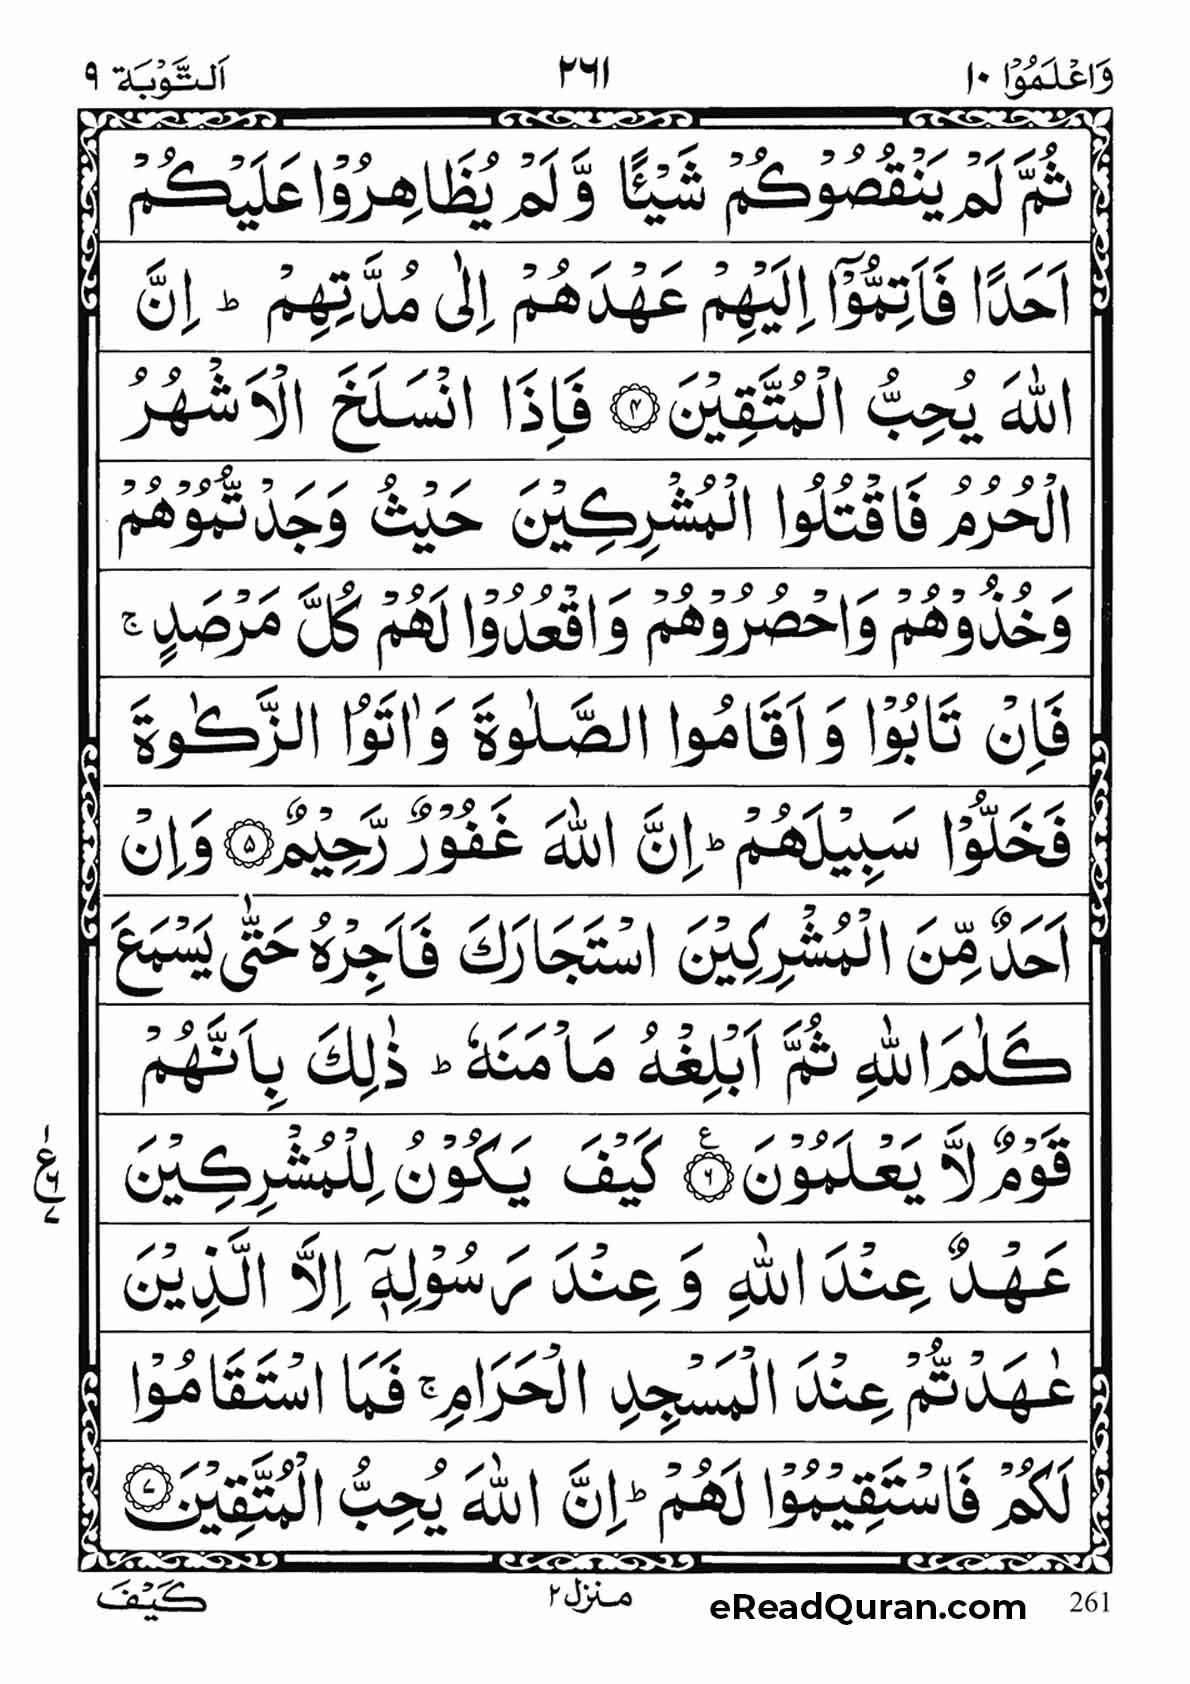 وَاعْلَمُوْا ١٠ ٢٦١ اَلتَّوْبَة ٩
ثُمَّ لَمْ يَنْقُصُوْكُمْ شَيْـًٔا وَّلَمْ يُظَاهِرُوْا عَلَيْكُمْ
اَحَدًا فَاَتِمُّوْۤا اِلَيْهِمْ عَهْدَهُمْ اِلٰى مُدَّتِهِمْ ؕ اِنَّ
اللّٰهَ يُحِبُّ الْمُتَّقِيْنَ ۴ فَاِذَا انْسَلَخَ الْاَشْهُرُ
الْحُرُمُ فَاقْتُلُوا الْمُشْرِكِيْنَ حَيْثُ وَجَدْتُّمُوْهُمْ
وَخُذُوْهُمْ وَاحْصُرُوْهُمْ وَاقْعُدُوْا لَهُمْ كُلَّ مَرْصَدٍ ۚ
فَاِنْ تَابُوْا وَاَقَامُوا الصَّلٰوةَ وَاٰتَوُا الزَّكٰوةَ
فَخَلُّوْا سَبِيْلَهُمْ ؕ اِنَّ اللّٰهَ غَفُوْرٌ رَّحِيْمٌ ۵ وَاِنْ
اَحَدٌ مِّنَ الْمُشْرِكِيْنَ اسْتَجَارَكَ فَاَجِرْهُ حَتّٰى يَسْمَعَ
كَلٰمَ اللّٰهِ ثُمَّ اَبْلِغْهُ مَاْمَنَهٗ ؕ ذٰلِكَ بِاَنَّهُمْ
قَوْمٌ لَّا يَعْلَمُوْنَ ۶ ع كَيْفَ يَكُوْنُ لِلْمُشْرِكِيْنَ
١ ع ۶ ٧
عَهْدٌ عِنْدَ اللّٰهِ وَعِنْدَ رَسُوْلِهٖۤ اِلَّا الَّذِيْنَ
عٰهَدْتُّمْ عِنْدَ الْمَسْجِدِ الْحَرَامِ ۚ فَمَا اسْتَقَامُوْا
لَكُمْ فَاسْتَقِيْمُوْا لَهُمْ ؕ اِنَّ اللّٰهَ يُحِبُّ الْمُتَّقِيْنَ ۷
261 eReadQuran.com منزل ٢ كَيْفَ